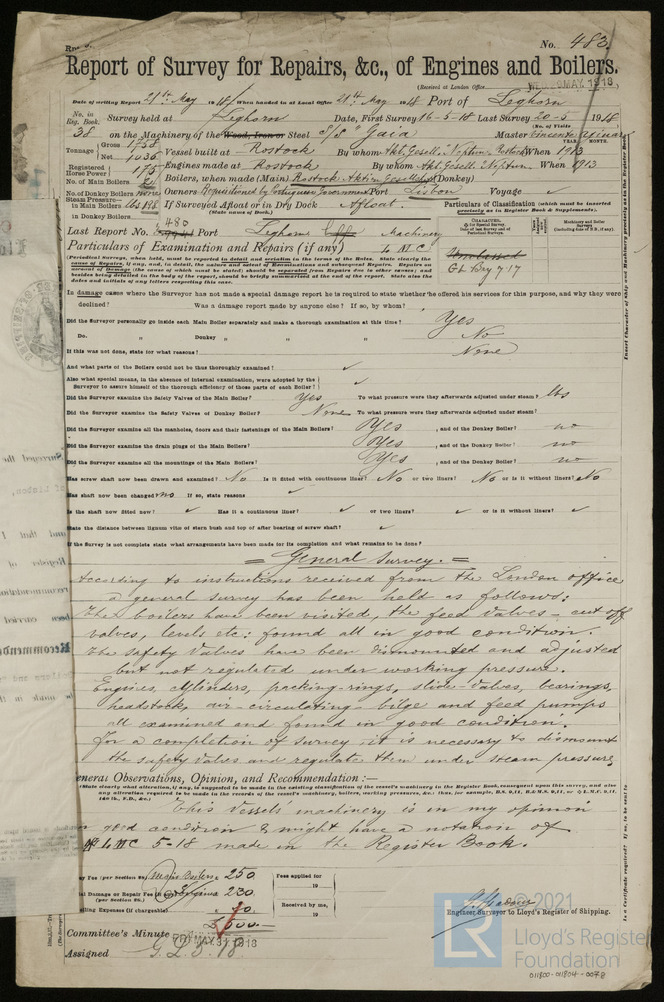 No. 483
Report of Survey for Repairs, &c., of Engines and Boilers.
(Received at London Office MAY. 1918
Date of writing Report 21st May 1918 When handed in at Local Office 21st May 1918 Port of Leghorn
No. in Reg. Book. Survey held at Leghorn Date, First Survey 16-5-18 Last Survey 20-5 1918
(No. of Visits
38 on the Machinery of the Wood, Iron or Steel S/S "Gaia" Master
Tonnage Gross 1738 Net 1036
Vessel built at Rostock By whom Akt. Gesell. Neptun, Rostock When 1913
Registered Horse Power 175 Engines made at Rostock By whom Akt. Gesell. Neptun When 1913
No. of Main Boilers 2 Boilers, when made (Main) Rostock (Donkey)
No. of Donkey Boilers None Owners Requisitioned by Portuguese Government Port Lisbon Voyage
Steam Pressure in Main Boilers lbs 198 If Surveyed Afloat or in Dry Dock Afloat.
in Donkey Boilers
(State name of Dock.)
Particulars of Classification (which must be inserted precisely as in Register Book & Supplements).
Last Report No. 480 Port Leghorn Machinery
Particulars of Examination and Repairs (if any) LMC
(Periodical Surveys, when held, must be reported in detail and seriatim in the terms of the Rules. State clearly the
In damage cases where the Surveyor has not made a special damage report he is required to state whether he offered his services for this purpose, and why they were
declined? Was a damage report made by anyone else? If so, by whom?
Did the Surveyor personally go inside each Main Boiler separately and make a thorough examination at this time? Yes
Do. " Donkey " " " No
If this was not done, state for what reasons? None
And what parts of the Boilers could not be thus thoroughly examined?
Also what special means, in the absence of internal examination, were adopted by the
Surveyor to assure himself of the thorough efficiency of those parts of each Boiler?
Did the Surveyor examine the Safety Valves of the Main Boiler? Yes To what pressure were they afterwards adjusted under steam? lbs
Did the Surveyor examine the Safety Valves of Donkey Boiler? None To what pressure were they afterwards adjusted under steam?
Did the Surveyor examine all the manholes, doors and their fastenings of the Main Boilers? Yes, and of the Donkey Boiler? no
Did the Surveyor examine the drain plugs of the Main Boilers? Yes, and of the Donkey Boiler? no
Did the Surveyor examine all the mountings of the Main Boilers? Yes, and of the Donkey Boiler? no
Has screw shaft now been drawn and examined? No Is it fitted with continuous liner? No or two liners? No or is it without liners? No
Has shaft now been changed? no If so, state reasons
Is the shaft now fitted new? Has it a continuous liner? or two liners? or is it without liners?
State the distance between lignum vitæ of stern bush and top of after bearing of screw shaft?
If the Survey is not complete state what arrangements have been made for its completion and what remains to be done?
= General Survey. =
According to instructions received from the London office
a general survey has been held as follows:
The boilers have been visited, the feed valves - cut off
valves, levels etc: found all in good condition.
The safety valves have been dismounted and adjusted
but not regulated under working pressure.
Engines, cylinders, packing-rings, slide-valves, bearings,
headstock, air-circulating- bilge and feed pumps
all examined and found in good condition.
For a completion of survey it is necessary to dismount
the safety valves and regulate them under steam pressure
General Observations, Opinion, and Recommendation:—
This vessels' machinery is in my opinion
in good condition & might have a notation of
LMC 5-18 made in the Register Book.
Fee (per Section 29) Main Boilers 250
Fees applied for 19
Damage or Repair Fee (if any) 230
(per Section 29.)
Received by me, 19
Travelling Expenses (if chargeable) 20.
£500.—
Engineer Surveyor to Lloyd's Register of Shipping.
Committee's Minute FRI. MAY. 31. 1918
Assigned
© 2021
LR
Lloyd's Register
Foundation
011800-011804-0078